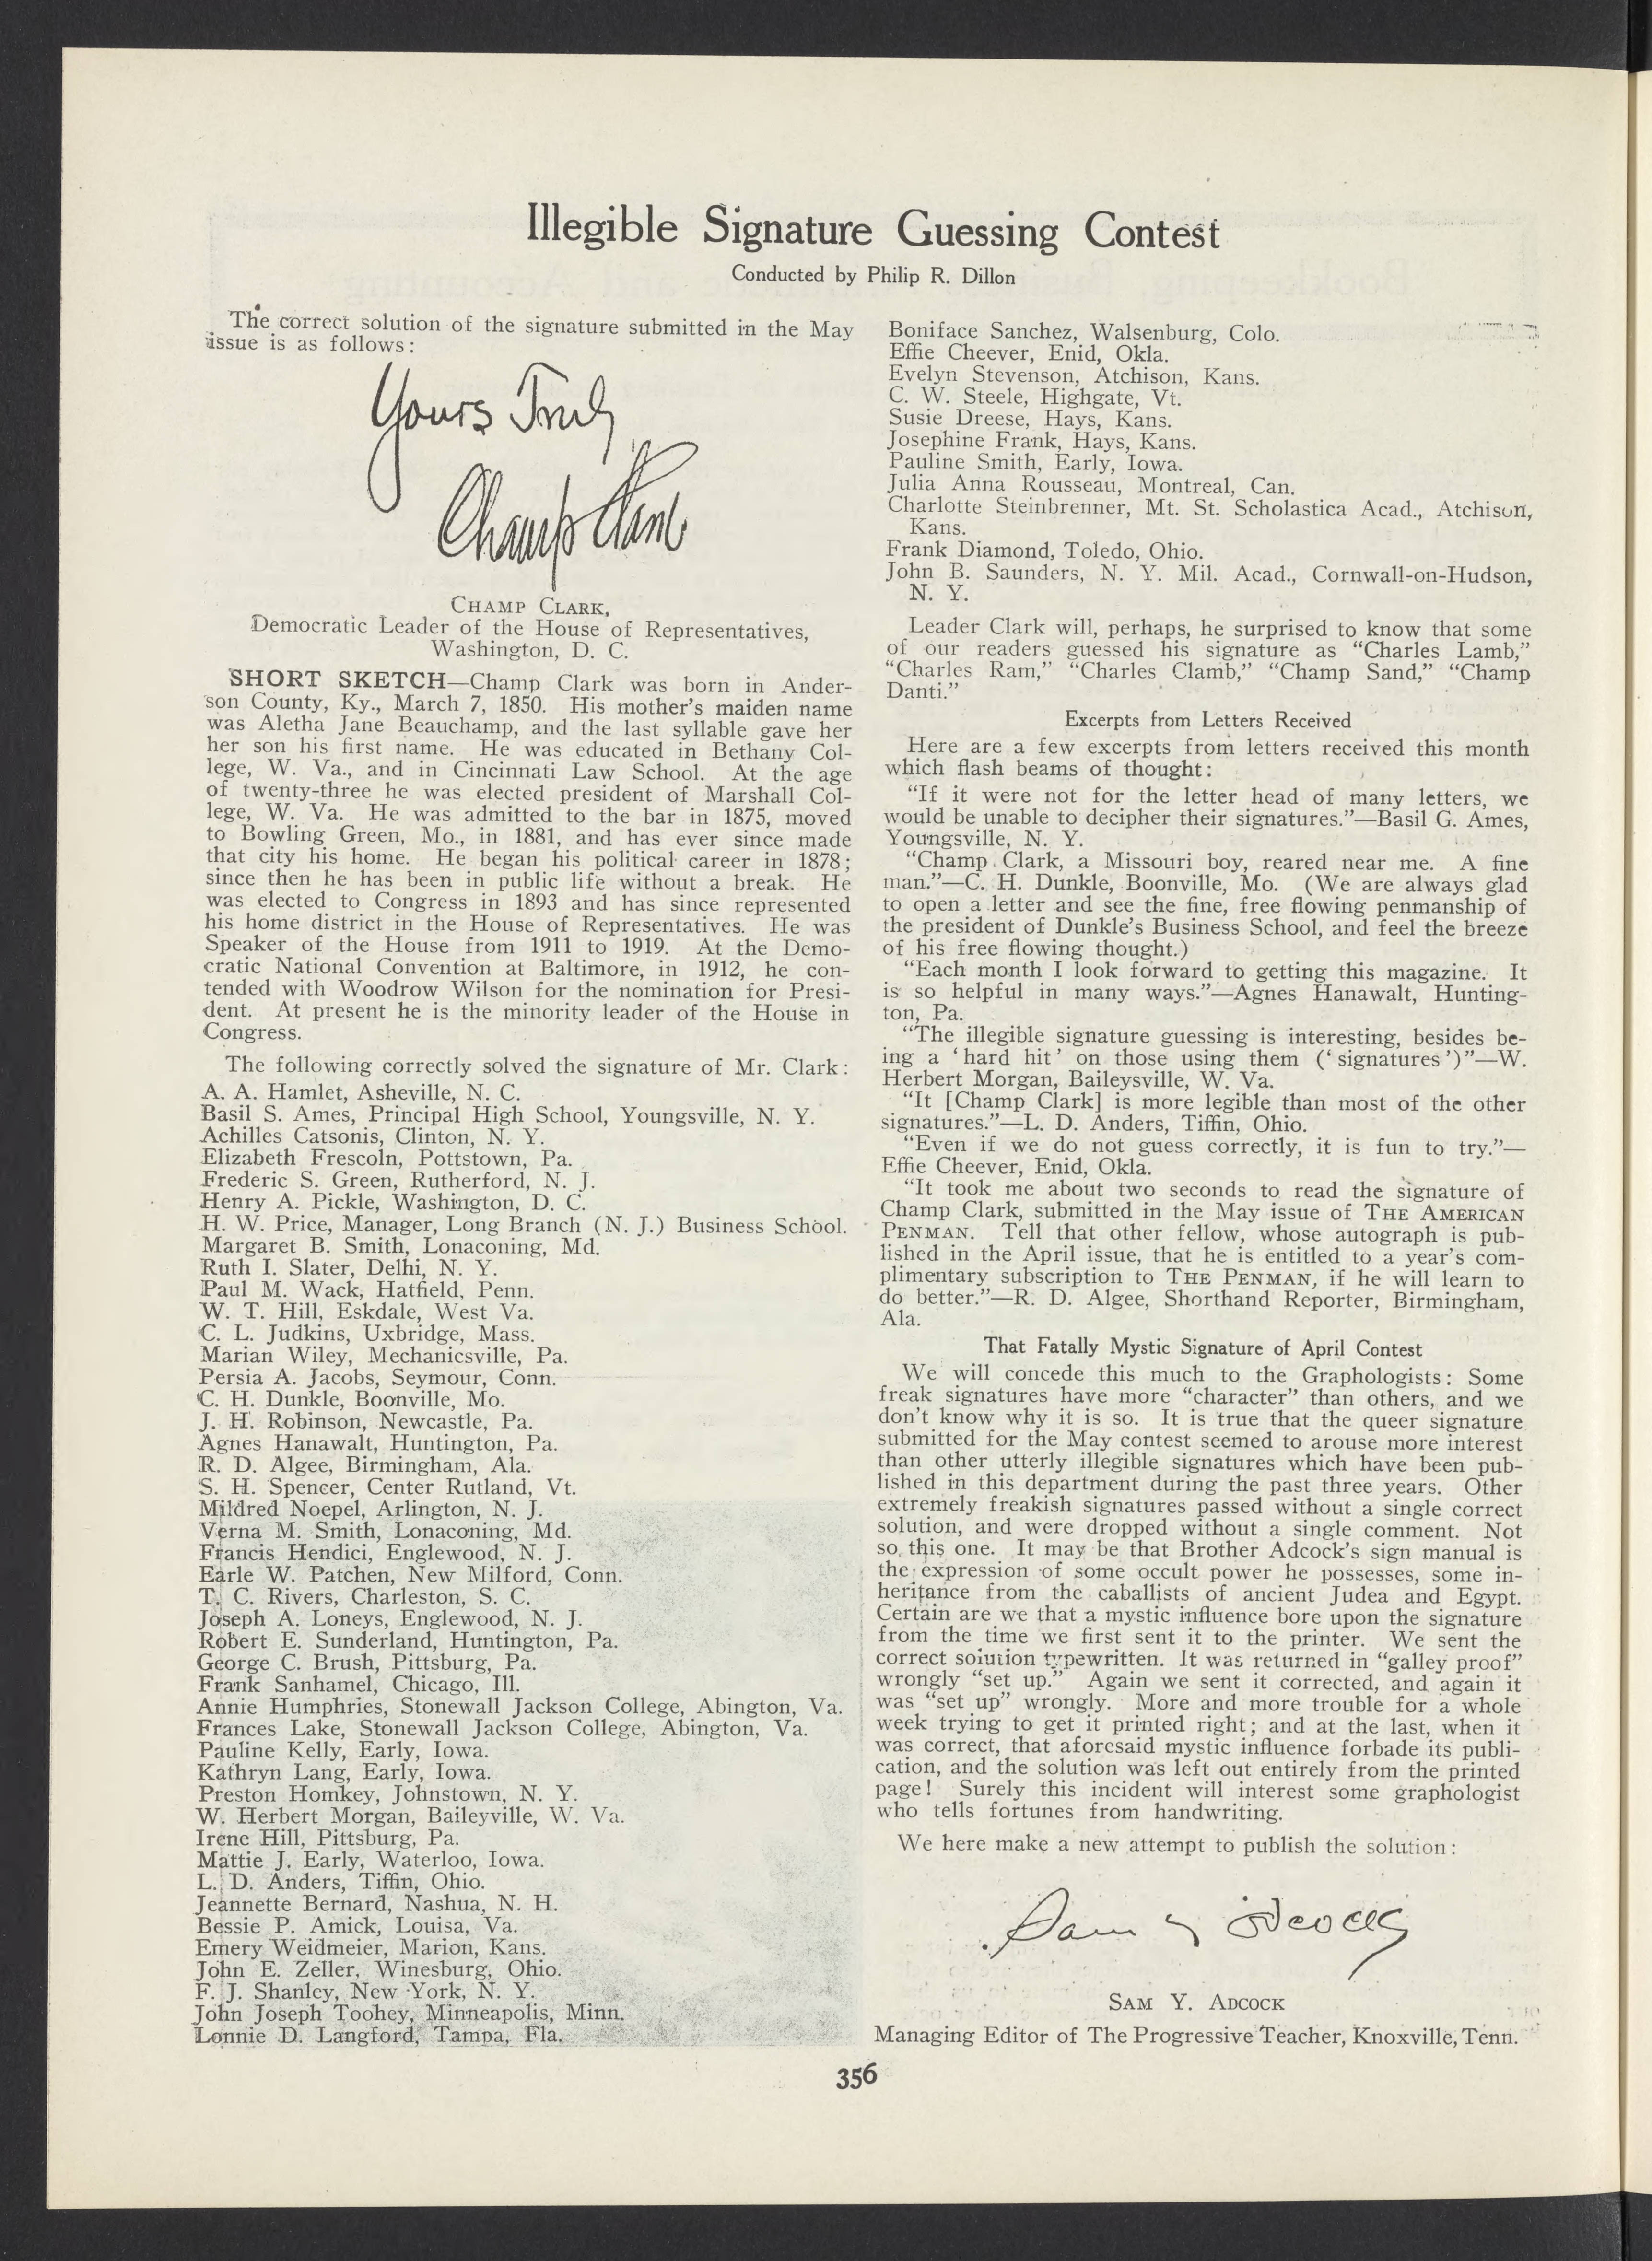 Illegible Signature Guessing Contest
Conducted by Philip R. Dillon
The correct solution of the signature submitted in the May
issue is as follows:
Yours Truly
Champ Clark
CHAMP CLARK,
Democratic Leader of the House of Representatives,
Washington, D. C.
SHORT SKETCH—Champ Clark was born in Ander-
son County, Ky., March 7, 1850. His mother's maiden name
was Aletha Jane Beauchamp, and the last syllable gave her
her son his first name. He was educated in Bethany Col-
lege, W. Va., and in Cincinnati Law School. At the age
of twenty-three he was elected president of Marshall Col-
lege, W. Va. He was admitted to the bar in 1875, moved
to Bowling Green, Mo., in 1881, and has ever since made
that city his home. He began his political career in 1878;
since then he has been in public life without a break. He
was elected to Congress in 1893 and has since represented
his home district in the House of Representatives. He was
Speaker of the House from 1911 to 1919. At the Demo-
cratic National Convention at Baltimore, in 1912, he con-
tended with Woodrow Wilson for the nomination for Presi-
dent. At present he is the minority leader of the House in
Congress.
The following correctly solved the signature of Mr. Clark:
A. A. Hamlet, Asheville, N. C.
Basil S. Ames, Principal High School, Youngsville, N. Y.
Achilles Catsonis, Clinton, N. Y.
Elizabeth Frescoln, Pottstown, Pa.
Frederic S. Green, Rutherford, N. J.
Henry A. Pickle, Washington, D. C.
H. W. Price, Manager, Long Branch (N. J.) Business School.
Margaret B. Smith, Lonaconing, Md.
Ruth I. Slater, Delhi, N. Y.
Paul M. Wack, Hatfield, Penn.
W. T. Hill, Eskdale, West Va.
C. L. Judkins, Uxbridge, Mass.
Marian Wiley, Mechanicsville, Pa.
Persia A. Jacobs, Seymour, Conn.
C. H. Dunkle, Boonville, Mo.
J. H. Robinson, Newcastle, Pa.
Agnes Hanawalt, Huntington, Pa.
R. D. Algee, Birmingham, Ala.
S. H. Spencer, Center Rutland, Vt.
Mildred Noepel, Arlington, N. J.
Verna M. Smith, Lonaconing, Md.
Francis Hendici, Englewood, N. J.
Earle W. Patchen, New Milford, Conn.
T. C. Rivers, Charleston, S. C.
Joseph A. Loneys, Englewood, N. J.
Robert E. Sunderland, Huntington, Pa.
George C. Brush, Pittsburg, Pa.
Frank Sanhamel, Chicago, Ill.
Annie Humphries, Stonewall Jackson College, Abington, Va.
Frances Lake, Stonewall Jackson College, Abington, Va.
Pauline Kelly, Early, Iowa.
Kathryn Lang, Early, Iowa.
Preston Homkey, Johnstown, N. Y.
W. Herbert Morgan, Baileyville, W. Va.
Irene Hill, Pittsburg, Pa.
Mattie J. Early, Waterloo, Iowa.
L. D. Anders, Tiffin, Ohio.
Jeannette Bernard, Nashua, N. H.
Bessie P. Amick, Louisa, Va.
Emery Weidmeier, Marion, Kans.
John E. Zeller, Winesburg, Ohio.
F. J. Shanley, New York, N. Y.
John Joseph Toohey, Minneapolis, Minn.
Lonnie D. Langford, Tampa, Fla.
Boniface Sanchez, Walsenburg, Colo.
Effie Cheever, Enid, Okla.
Evelyn Stevenson, Atchison, Kans.
C. W. Steele, Highgate, Vt.
Susie Dreese, Hays, Kans.
Josephine Frank, Hays, Kans.
Pauline Smith, Early, Iowa.
Julia Anna Rousseau, Montreal, Can.
Charlotte Steinbrenner, Mt. St. Scholastica Acad., Atchison,
Kans.
Frank Diamond, Toledo, Ohio.
John B. Saunders, N. Y. Mil. Acad., Cornwall-on-Hudson,
N. Y.
Leader Clark will, perhaps, he surprised to know that some
of our readers guessed his signature as "Charles Lamb,"
"Charles Ram," "Charles Clamb," "Champ Sand," "Champ
Danti."
Excerpts from Letters Received
Here are a few excerpts from letters received this month
which flash beams of thought:
"If it were not for the letter head of many letters, we
would be unable to decipher their signatures."—Basil G. Ames,
Youngsville, N. Y.
"Champ Clark, a Missouri boy, reared near me. A fine
man."—C. H. Dunkle, Boonville, Mo. (We are always glad
to open a letter and see the fine, free flowing penmanship of
the president of Dunkle's Business School, and feel the breeze
of his free flowing thought.)
"Each month I look forward to getting this magazine. It
is so helpful in many ways."—Agnes Hanawalt, Hunting-
ton, Pa.
"The illegible signature guessing is interesting, besides be-
ing a 'hard hit' on those using them ('signatures')"—W.
Herbert Morgan, Baileysville, W. Va.
"It [Champ Clark] is more legible than most of the other
signatures."—L. D. Anders, Tiffin, Ohio.
"Even if we do not guess correctly, it is fun to try."—
Effie Cheever, Enid, Okla.
"It took me about two seconds to read the signature of
Champ Clark, submitted in the May issue of THE AMERICAN
PENMAN. Tell that other fellow, whose autograph is pub-
lished in the April issue, that he is entitled to a year's com-
plimentary subscription to THE PENMAN, if he will learn to
do better."—R. D. Algee, Shorthand Reporter, Birmingham,
Ala.
That Fatally Mystic Signature of April Contest
We will concede this much to the Graphologists: Some
freak signatures have more "character" than others, and we
don't know why it is so. It is true that the queer signature
submitted for the May contest seemed to arouse more interest
than other utterly illegible signatures which have been pub-
lished in this department during the past three years. Other
extremely freakish signatures passed without a single correct
solution, and were dropped without a single comment. Not
so this one. It may be that Brother Adcock's sign manual is
the expression of some occult power he possesses, some in-
heritance from the caballists of ancient Judea and Egypt.
Certain are we that a mystic influence bore upon the signature
from the time we first sent it to the printer. We sent the
correct solution typewritten. It was returned in "galley proof"
wrongly "set up." Again we sent it corrected, and again it
was "set up" wrongly. More and more trouble for a whole
week trying to get it printed right; and at the last, when it
was correct, that aforesaid mystic influence forbade its publi-
cation, and the solution was left out entirely from the printed
page! Surely this incident will interest some graphologist
who tells fortunes from handwriting.
We here make a new attempt to publish the solution:
Sam Y Adcock
SAM Y. ADCOCK
Managing Editor of The Progressive Teacher, Knoxville, Tenn.
356